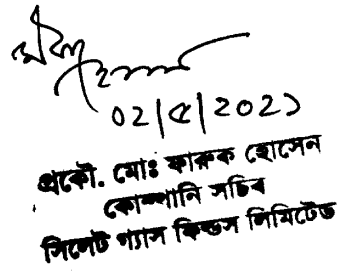 ০২/৫/২০২১
প্রকৌ. মোঃ ফারুক হোসেন
কোম্পানি সচিব
সিলেট গ্যাস ফিল্ডস লিমিটেড